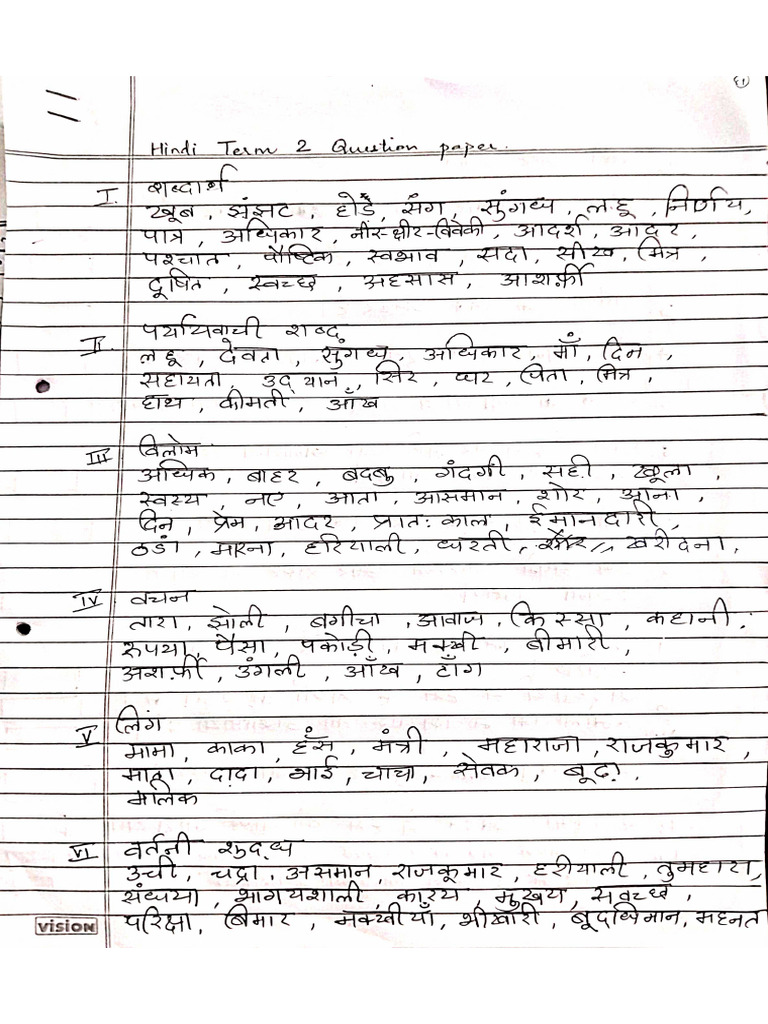 Hindi Term 2 Question paper.
I. शब्दार्थ
खूब, झंझट, होडै, संग, सुंगध्य, लहू, निर्णय,
पात्र, अधिकार, नीर-क्षीर-विवेकी, आदर्श, आदर,
पश्चात, पौष्टिक, स्वभाव, सदा, सीख, मित्र,
दूषित, स्वच्छ, अहसास, आशर्फ़ी
II. पर्यायवाची शब्द
लहू, देवता, सुंगध्य, अधिकार, माँ, दिन,
सहायता, उद्यान, सिर, घर, पिता, मित्र,
हाथ, कीमती, आँख
III विलोम
अधिक, बाहर, बदबु, गंदगी, सही, खूला,
स्वस्थ, नए, आता, आसमान, शोर, आना,
दिन, प्रेम, आदर, प्रातःकाल, ईमानदारी,
ठडां, मारना, हरियाली, धरती, खरीदना,
IV वचन
तारा, झोली, बगीचा, आवाज, किस्सा, कहानी,
रुपया, पैसा, पकोड़ी, मक्खी, बीमारी,
अशर्फ़ी, उंगली, आँख, टाँग
V लिंग
मामा, काका, हंस, मंत्री, महाराजा, राजकुमार,
माता, दादा, भाई, चाचा, सेवक, बूढ़ा,
मालिक
VI वर्तनी शुद्ध
उची, चद्रा, असमान, राजकूमार, हरीयाली, तुमहारा,
संध्यया, भागयशाली, कारय, मुखय, सवच्छ,
परिक्षा, बिमार, मक्खीयाँ, भीखारी, बूदधिमान, महनत
vision